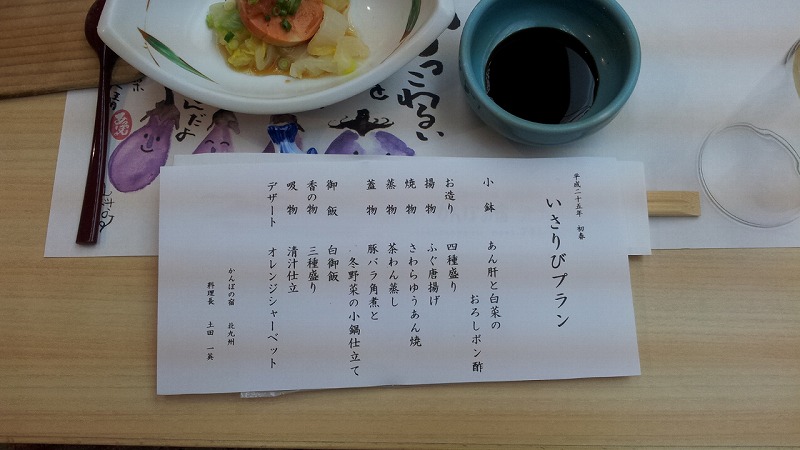 平成二十五年 初春
いさりびプラン
小鉢 あん肝と白菜の
おろしポン酢
お造り 四種盛り
揚物 ふぐ唐揚げ
焼物 さわらゆうあん焼
蒸物 茶わん蒸し
蓋物 豚バラ角煮と
冬野菜の小鍋仕立て
御飯 白御飯
香の物 三種盛り
吸物 清汁仕立
デザート オレンジシャーベット
かんぽの宿 北九州
料理長 土田 一英
んだよ